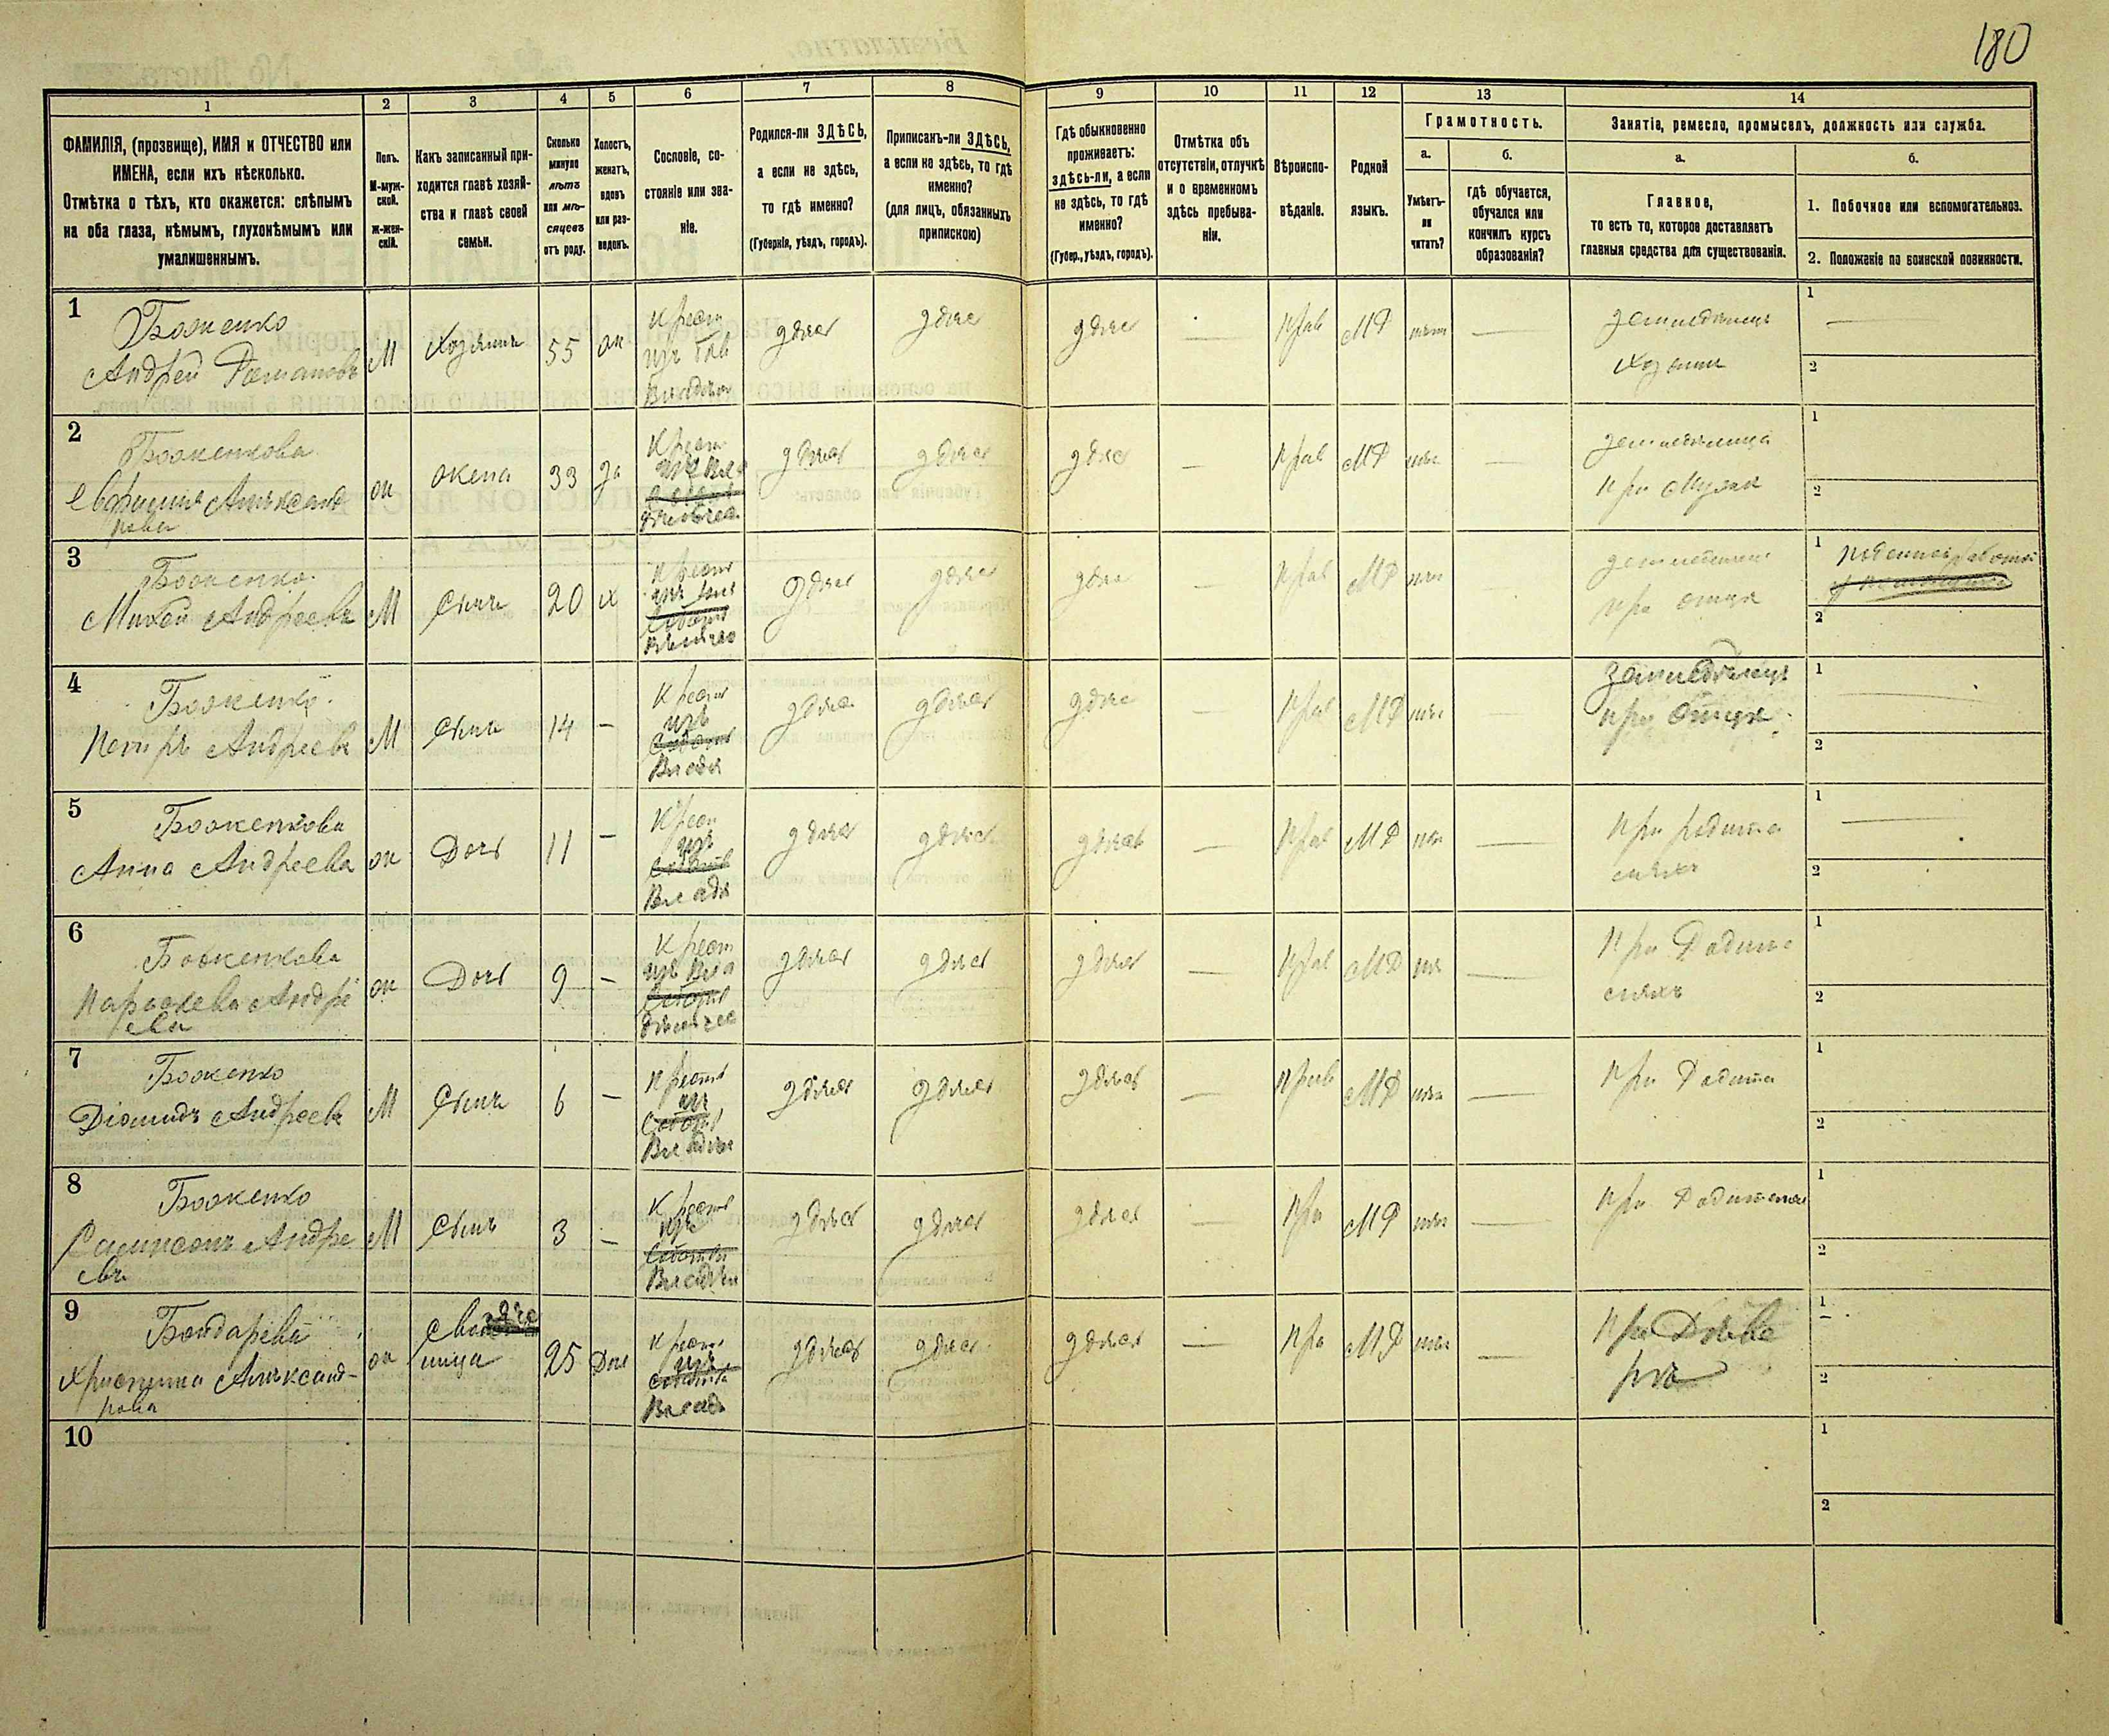 180
1 2 3 4 5 6 7 8 9 10 11 12 13 14
ФАМИЛІЯ, (прозвище), ИМЯ и ОТЧЕСТВО или
ИМЕНА, если ихъ нѣсколько.
Отмѣтка о тѣхъ, кто окажется: слѣпымъ
на оба глаза, нѣмымъ, глухонѣмымъ или
умалишеннымъ.
Полъ.
М-муж-
ской.
Ж-жен-
скій.
Какъ записанный при-
ходится главѣ хозяй-
ства и главѣ своей
семьи.
Сколько
минуло
лѣтъ
или мѣ-
сяцевъ
отъ роду.
Холостъ,
женатъ,
вдовъ
или раз-
веденъ.
Сословіе, со-
стояніе или зва-
ніе.
Родился-ли ЗДѢСЬ,
а если не здѣсь,
то гдѣ именно?
(Губернія, уѣздъ, городъ).
Приписанъ-ли ЗДѢСЬ,
а если не здѣсь, то гдѣ
именно?
(для лицъ, обязанныхъ
припискою)
Гдѣ обыкновенно
проживаетъ:
здѣсь-ли, а если
не здѣсь, то гдѣ
именно?
(Губер., уѣздъ, городъ).
Отмѣтка объ
отсутствіи, отлучкѣ
и о временномъ
здѣсь пребыва-
ніи.
Вѣроиспо-
вѣданіе.
Родной
языкъ.
Грамотность.
а.
Умѣетъ-
ли
читать?
б.
гдѣ обучается,
обучался или
кончилъ курсъ
образованія?
Занятіе, ремесло, промыселъ, должность или служба.
а.
Главное,
то есть то, которое доставляетъ
главныя средства для существованія.
б.
1. Побочное или вспомогательное.
2. Положеніе по воинской повинности.
1
Боженко
Андрей Романовъ
М
Хозяинъ
55
ж
Крест
изъ
Владѣ
здѣсь
здѣсь
здѣсь
—
Прав
МР
нѣтъ
—
земледѣлецъ
хозяинъ
1
—
2
2
Боженкова
Евфросинія Александ
рова
ж
жена
33
за
Крест
изъ Вла
здѣсь
здѣсь
здѣсь
—
Прав
МР
нѣтъ
—
земледѣлица
при мужѣ
1
2
3
Боженко
Михей Андреевъ
М
Сынъ
20
х
Крест
изъ
здѣсь
здѣсь
здѣсь
—
Прав
МР
нѣтъ
—
земледѣлецъ
при отцѣ
1
2
4
Боженко
Петръ Андреевъ
М
Сынъ
14
—
Крест
изъ
Владѣ
здѣсь
здѣсь
здѣсь
—
Прав
МР
нѣтъ
—
Земледѣлецъ
при отцѣ
1
—
2
5
Боженкова
Анна Андреева
ж
Дочь
11
—
Крест
изъ
Владѣ
здѣсь
здѣсь
здѣсь
—
Прав
МР
нѣтъ
—
При родите
ляхъ
1
—
2
6
Боженкова
Параскева Андре
ева
ж
Дочь
9
—
Крест
изъ Вла
здѣсь
здѣсь
здѣсь
—
Прав
МР
нѣтъ
—
При Родите
ляхъ
1
2
7
Боженко
Діомидъ Андреевъ
М
Сынъ
6
—
Крест
изъ
Владѣ
здѣсь
здѣсь
здѣсь
—
Прав
МР
нѣтъ
—
При Родите
1
2
8
Боженко
Сампсонъ Андре
евъ
М
Сынъ
3
—
Крест
изъ
Владѣ
здѣсь
здѣсь
здѣсь
—
Пра
МР
нѣтъ
—
При Родителяхъ
1
2
9
Бондарева
Христина Александ-
рова
ж
25
Крест
изъ
Владѣ
здѣсь
здѣсь
здѣсь
—
Пра
МР
нѣтъ
—
1
2
10
1
2